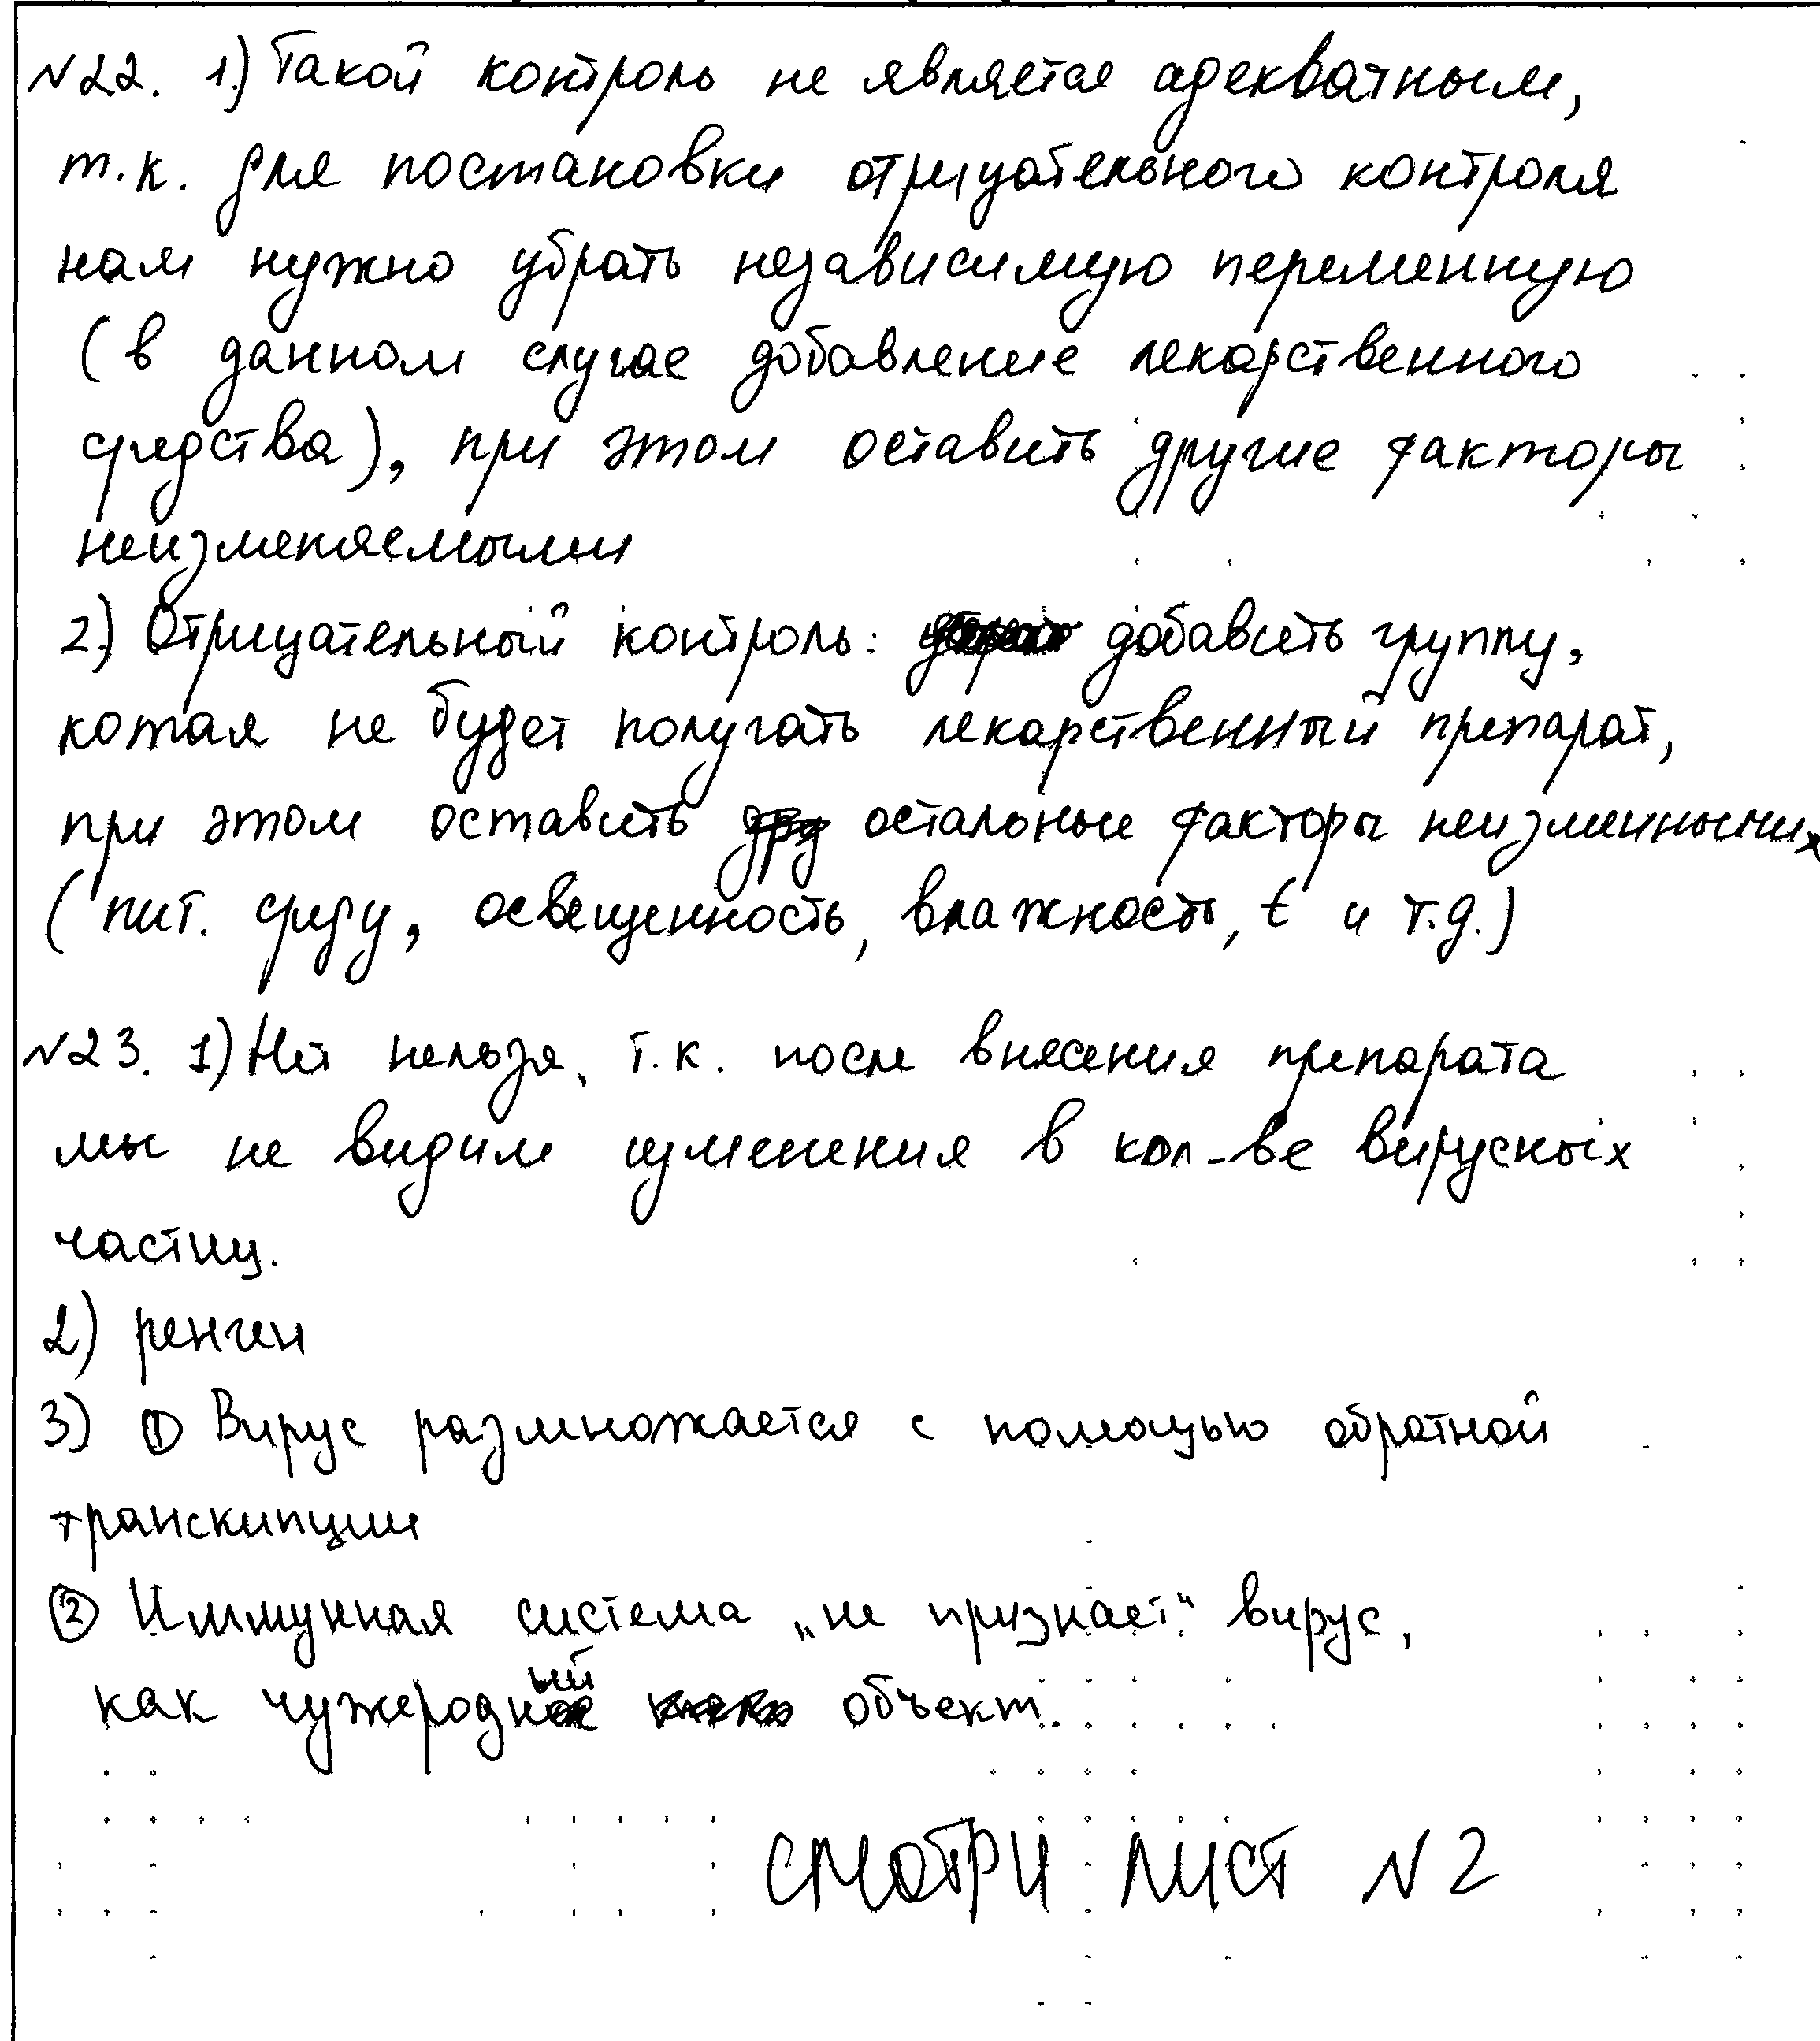 №22. 1.) Такой контроль не является адекватным,
т.к. для постановки отрицательного контроля
нам нужно убрать независимую переменную
(в данном случае добавление лекарственного
средства), при этом оставить другие факторы
неизменяемыми
2.) Отрицательный контроль: добавить группу,
котая не будет получать лекарственный препарат,
при этом оставить остальные факторы неизменными
(пит. среду, освещенность, влажность, t и т.д.)
№23. 1) Нет нельзя, т.к. после внесения препарата
мы не видим изменения в кол-ве вирусных
частиц.
2) ренген
3) ① Вирус размножается с помощью обратной
транскипции
② Иммунная система „не признает“ вирус,
как чужеродный объект.
СМОТРИ ЛИСТ №2